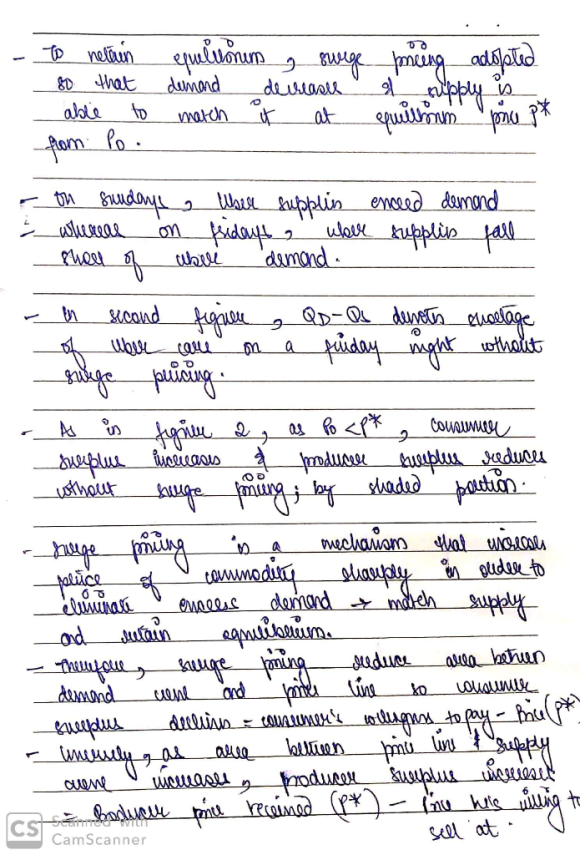 - To retain equilibrium, surge pricing adopted
so that demand decreases & supply is
able to match it at equilibrium price P*
from Po.
- On sundays, Uber supplies exceed demand
- whereas on fridays, uber supplies fall
short of uber demand.
- In second figure, QD-QS denotes shortage
of uber cars on a friday night without
surge pricing.
- As in figure 2, as Po < P*, consumer
surplus increases & producer surplus reduces
without surge pricing; by shaded portion.
- surge pricing is a mechanism that increases
price of commodity sharply in order to
eliminate excess demand → match supply
and retain equilibrium.
- Therefore, surge pricing reduce area between
demand curve and price line so consumer
surplus declines = consumer's willingness to pay - Price (P*)
- Conversely, as area between price line & supply
curve increases, producer surplus increases
= Producer price received (P*) - Price he's willing to
sell at.
CS Scanned with
CamScanner